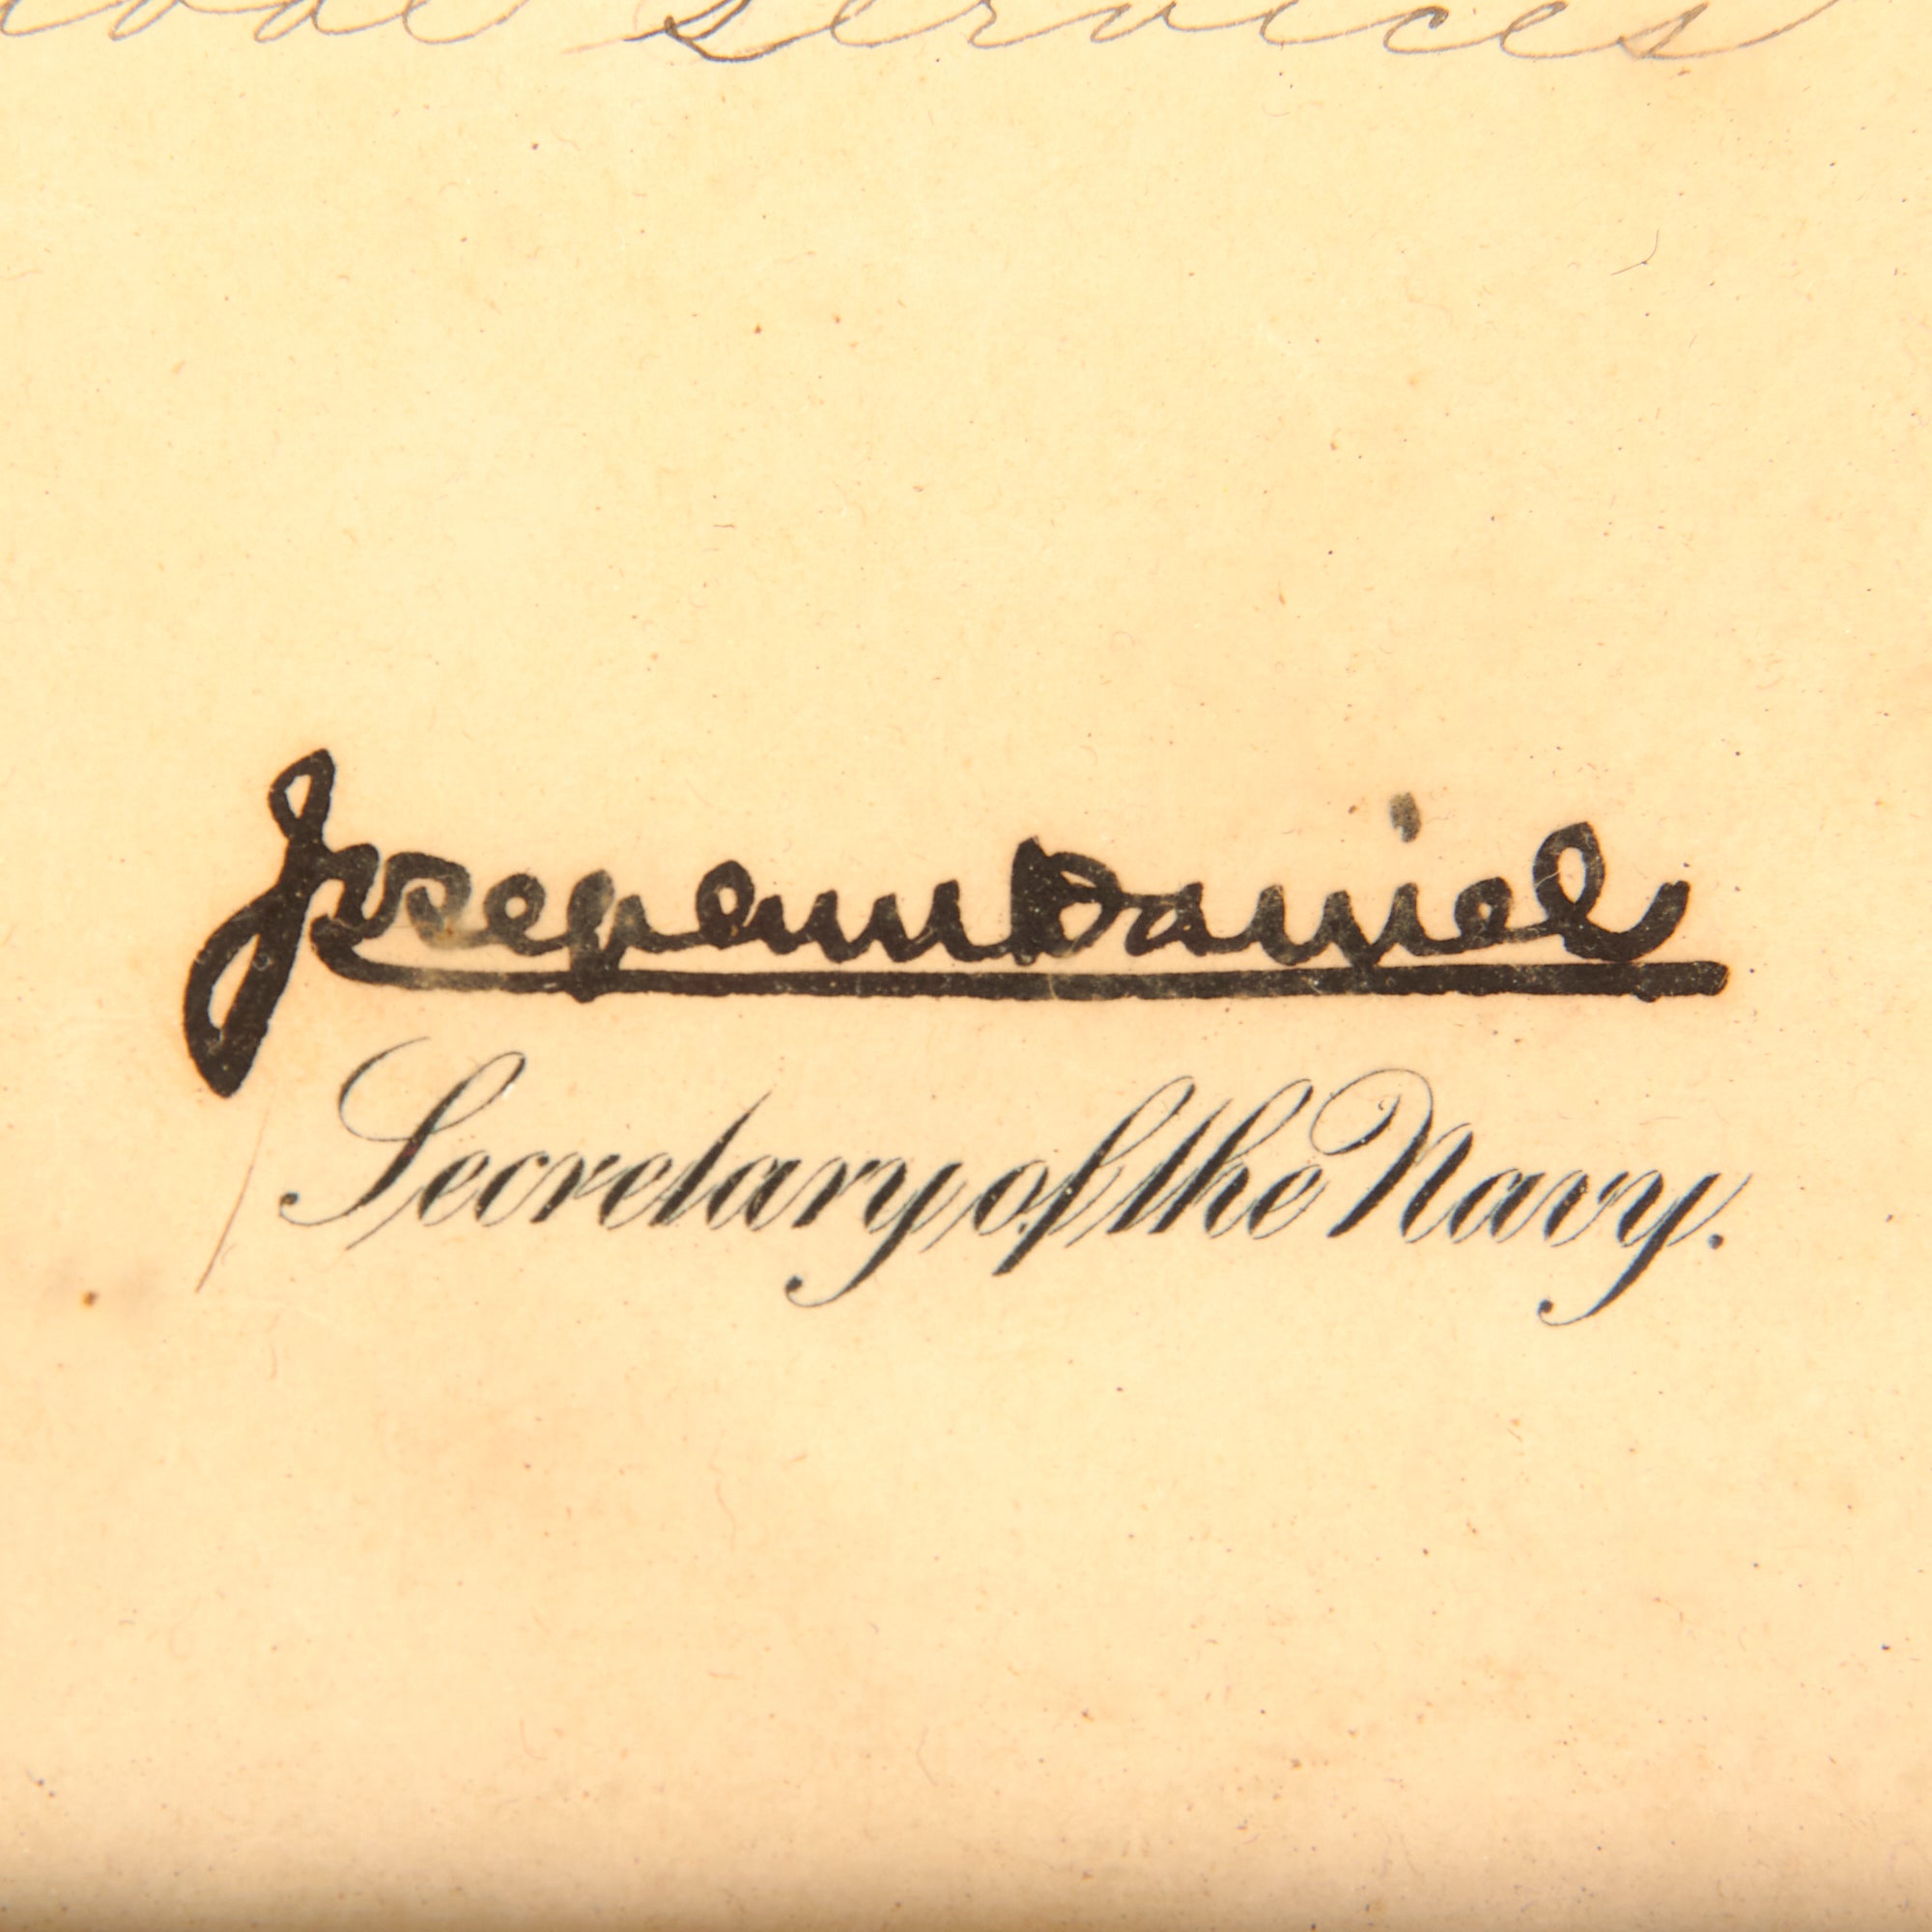 services
Josephus Daniels
Secretary of the Navy.